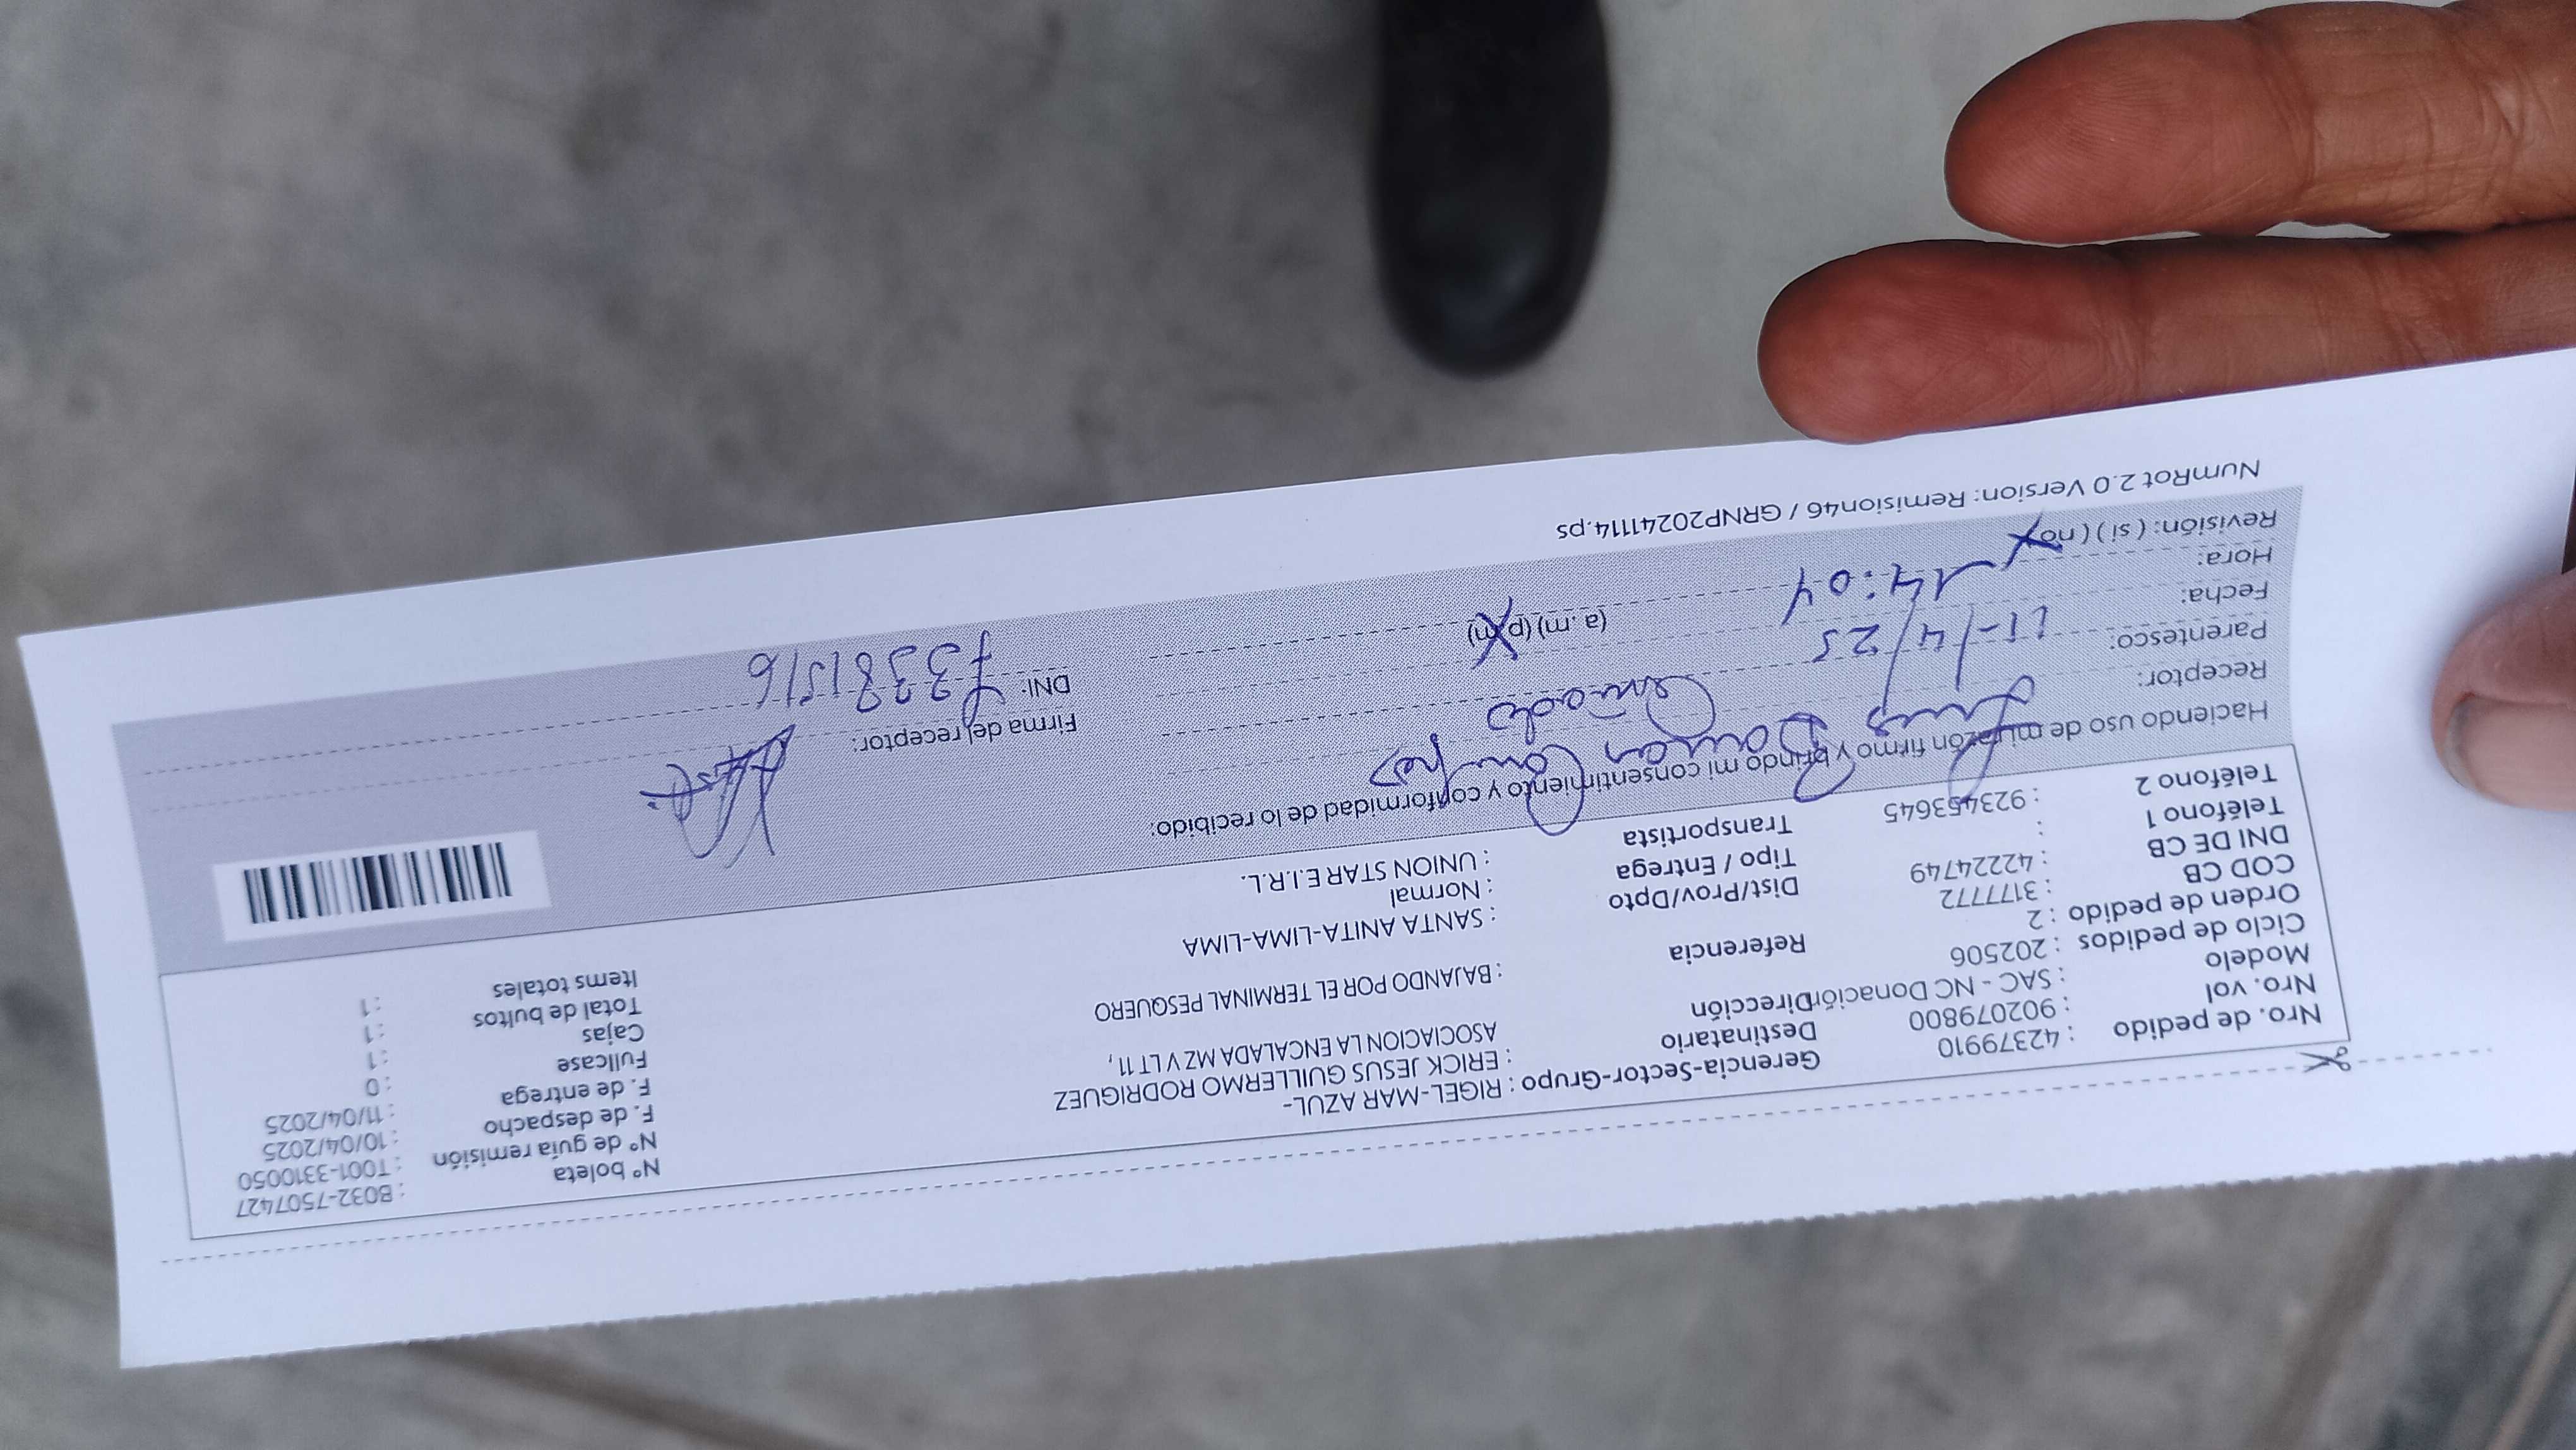 Nro. de pedido : 42379910
Nro. vol : 902079800
Modelo : SAC - NC Donación
Ciclo de pedidos : 202506
Orden de pedido : 2
COD CB : 3177772
DNI DE CB : 42224749
Teléfono 1 :
Teléfono 2 : 923453645
Gerencia-Sector-Grupo : RIGEL-MAR AZUL-
Destinatario : ERICK JESUS GUILLERMO RODRIGUEZ
Dirección ASOCIACION LA ENCALADA MZ V LT 11,
Referencia : BAJANDO POR EL TERMINAL PESQUERO
Dist/Prov/Dpto : SANTA ANITA-LIMA-LIMA
Tipo / Entrega : Normal
Transportista : UNION STAR E.I.R.L.
N° boleta : B032-7507427
N° de guía remisión : T001-3310050
F. de despacho : 10/04/2025
F. de entrega : 11/04/2025
Fullcase : 0
Cajas : 1
Total de bultos : 1
Items totales : 1
Haciendo uso de mi razón firmo y brindo mi consentimiento y conformidad de lo recibido:
Receptor: Luis
Parentesco:
Fecha: 11-/4/25
Hora: 14:04 (a. m) (p.m)
Revisión: ( si ) ( no
Firma del receptor:
DNI: 73381516
NumRot 2.0 Version: Remision46 / GRNP20241114.ps